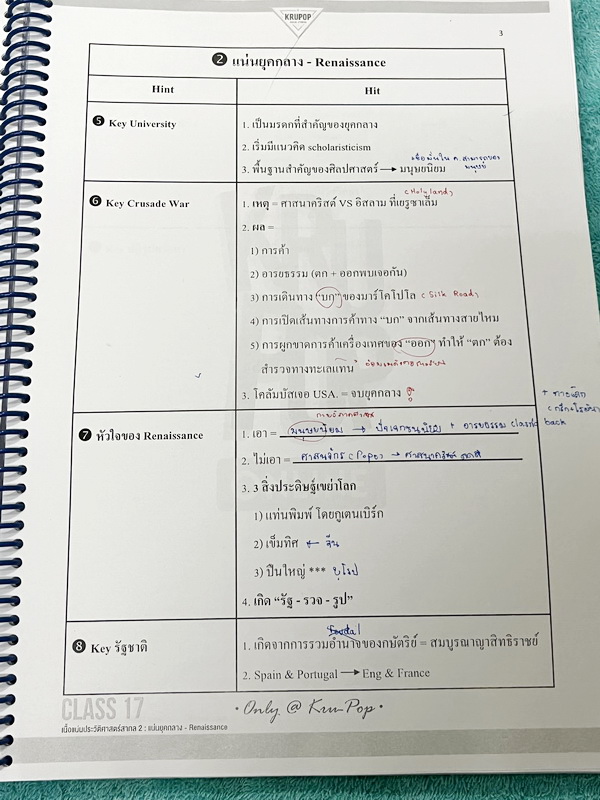 KRUPOP
3
❷ แน่นยุคกลาง - Renaissance
Hint
Hit
❺ Key University
1. เป็นมรดกที่สำคัญของยุคกลาง
2. เริ่มมีแนวคิด scholaristicism
3. พื้นฐานสำคัญของศิลปศาสตร์ → มนุษยนิยม
❻ Key Crusade War
(Holyland)
1. เหตุ = ศาสนาคริสต์ VS อิสลาม ที่เยรูซาเล็ม
2. ผล =
1) การค้า
2) อารยธรรม (ตก + ออกพบเจอกัน)
3) การเดินทาง "บก" ของมาร์โคโปโล (Silk Road)
4) การเปิดเส้นทางการค้าทาง "บก" จากเส้นทางสายไหม
5) การผูกขาดการค้าเครื่องเทศของ "ออก" ทำให้ "ตก" ต้อง
สำรวจทางทะเลแทน
3. โคลัมบัสเจอ USA. = จบยุคกลาง
❼ หัวใจของ Renaissance
1. เอา = มนุษยนิยม → ปัจเจกชนนิยม + อารยธรรม classic back
2. ไม่เอา = ศาสนจักร (Pope) → ศาสนาคริสต์
3. 3 สิ่งประดิษฐ์เขย่าโลก
1) แท่นพิมพ์ โดยกูเตนเบิร์ก
2) เข็มทิศ ← จีน
3) ปืนใหญ่ *** ยุโรป
4. เกิด "รัฐ - รวจ - รูป"
❽ Key รัฐชาติ
Feudal
1. เกิดจากการรวมอำนาจของกษัตริย์ = สมบูรณาญาสิทธิราชย์
2. Spain & Portugal → Eng & France
CLASS 17
• Only @ Kru-Pop •
เนื้อแน่นประวัติศาสตร์สากล 2 : แน่นยุคกลาง - Renaissance